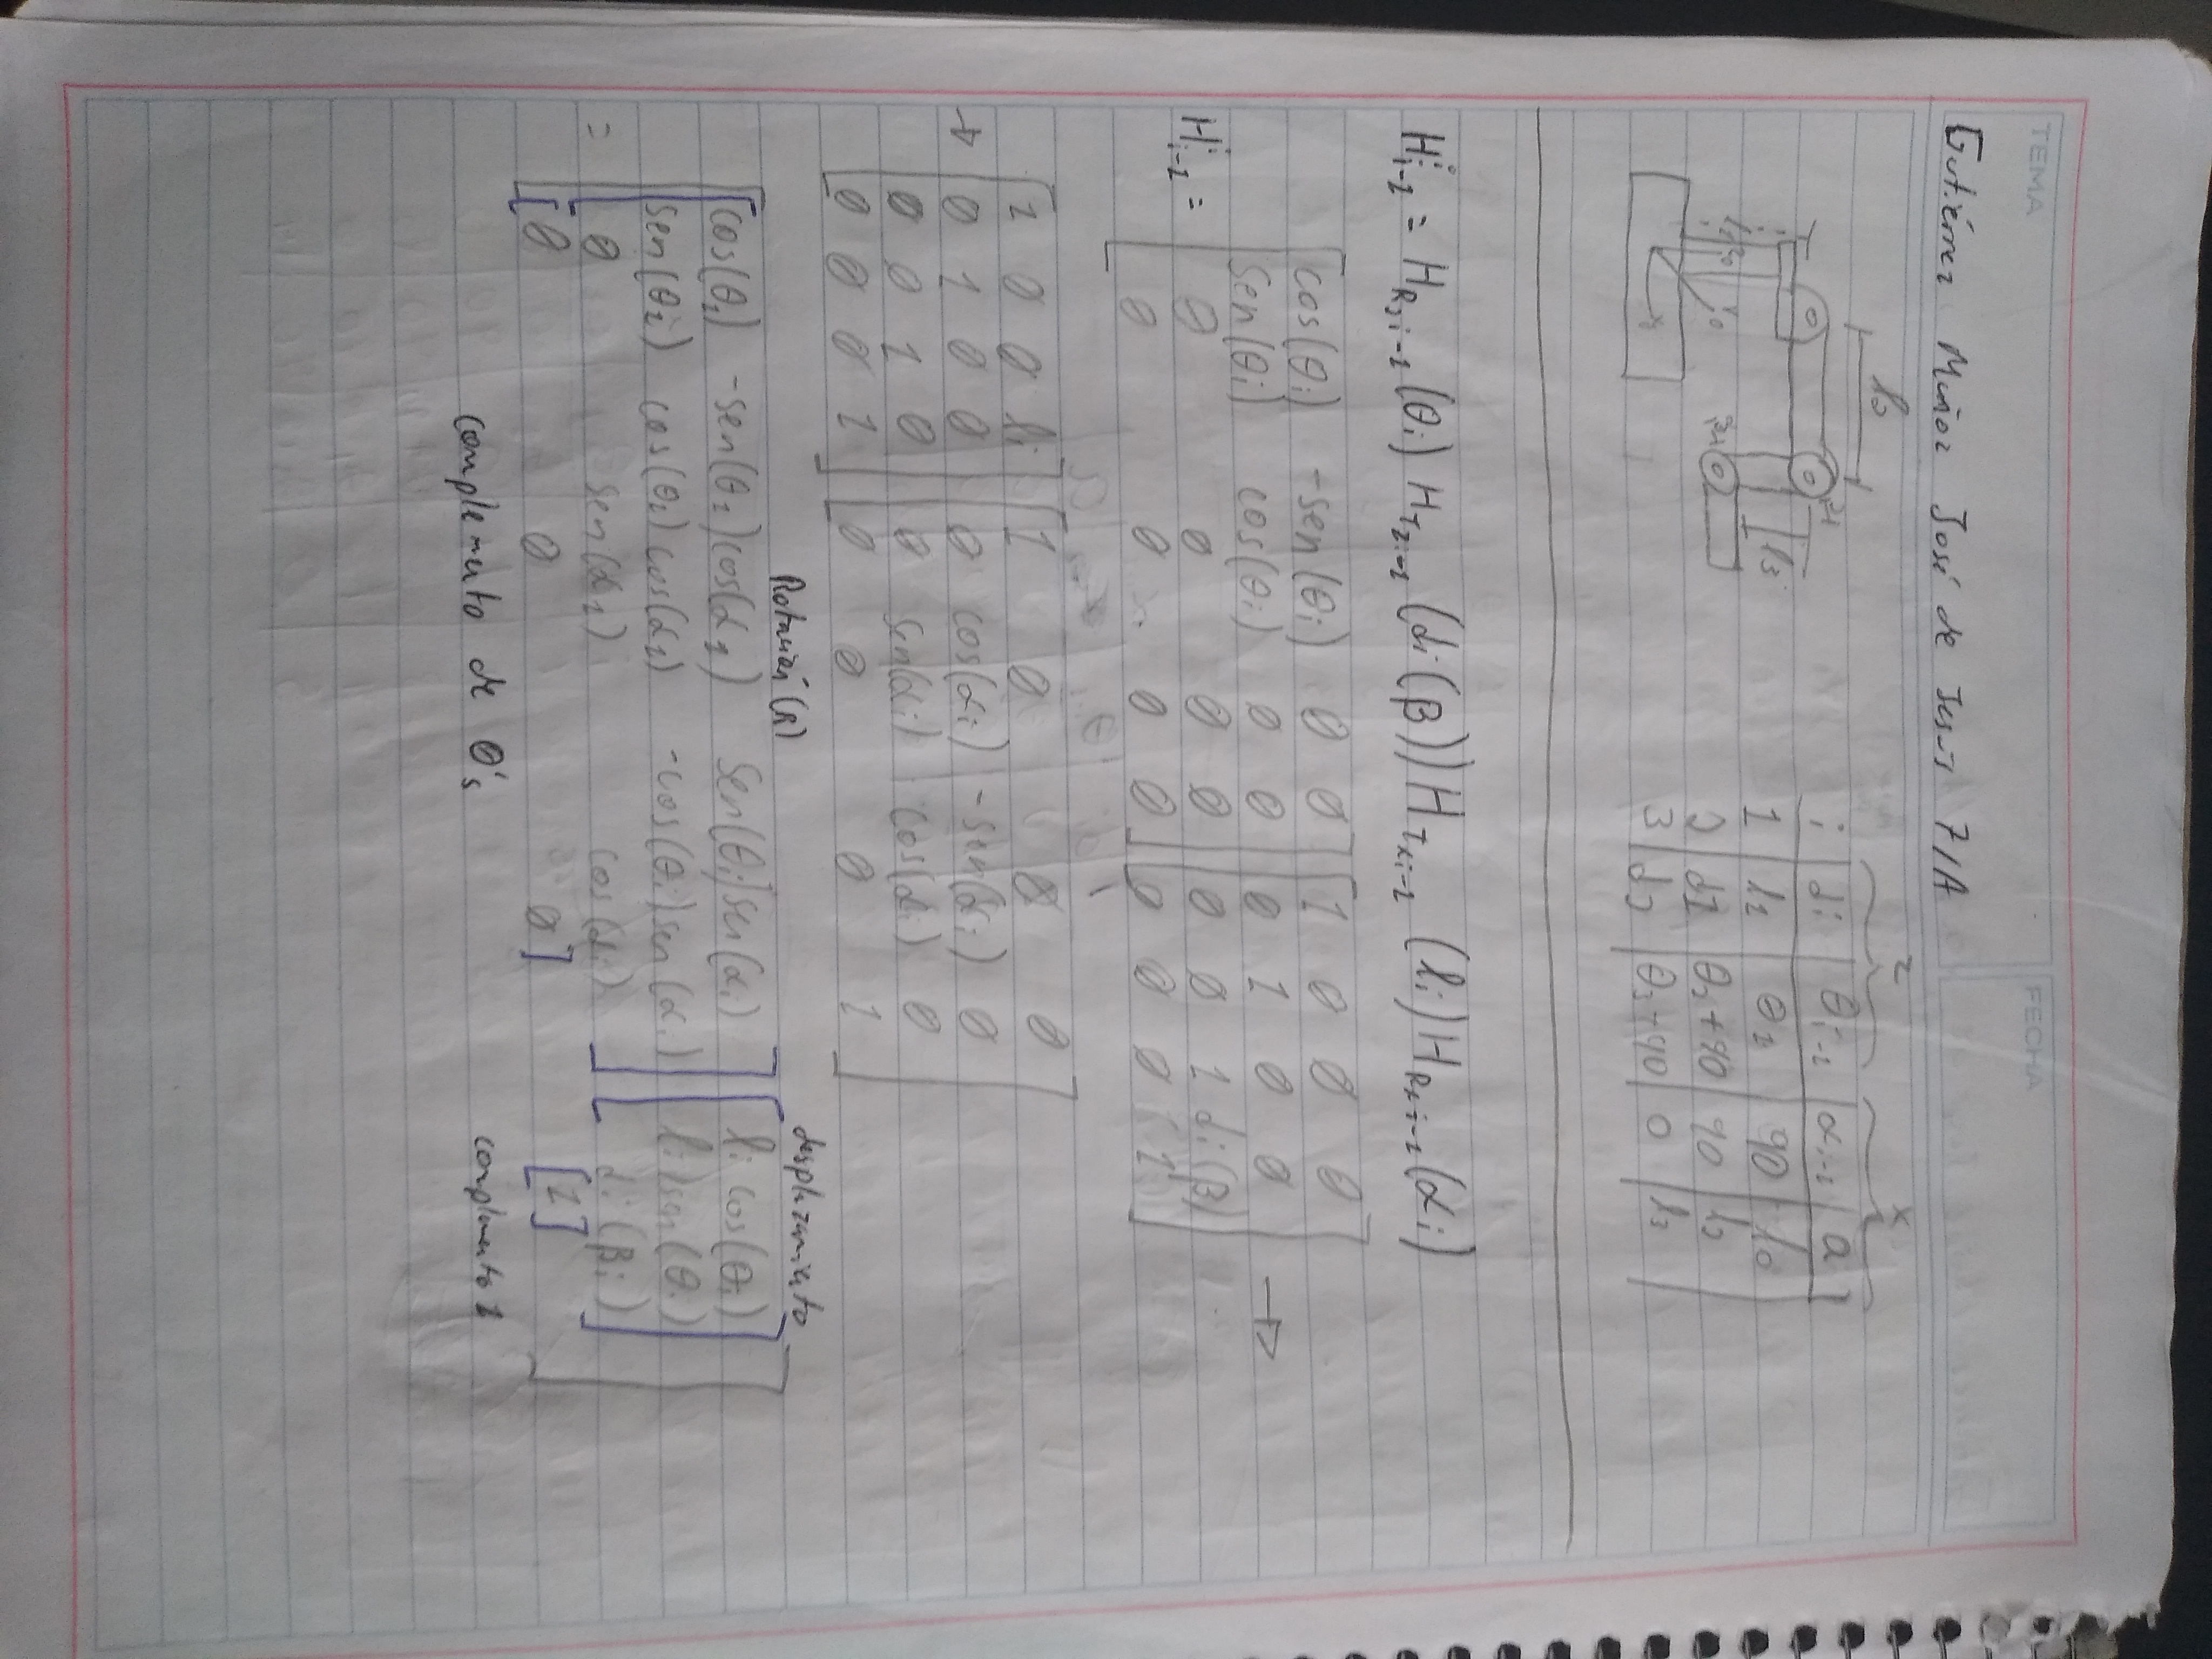 TEMA
FECHA
Gutiérrez Muñoz José de Jesus 7/A
l2
z
x
i di θi-1 αi-1 a
1 l1 θ1 90 l0
2 d1 θ2+90 90 l2
3 d2 θ3+90 0 l3
z1
l3
z1
Hⁱi-1 = HRzi-1 (θi) HTzi-1 (di(β)) HTxi-1 (li) HRxi-1 (αi)
Hⁱi-1 =
cos(θi) -sen(θi) 0 0 1 0 0 0
sen(θi) cos(θi) 0 0 0 1 0 0 →
0 0 0 0 0 0 1 di(β)
0 0 0 0 0 0 0 1
1 0 0 li 1 0 0 0
→ 0 1 0 0 0 cos(αi) -sen(αi) 0
0 0 1 0 0 sen(αi) cos(αi) 0
0 0 0 1 0 0 0 1
Rotación (R) desplazamiento
cos(θ1) -sen(θ1)cos(α1) sen(θi)sen(αi) li cos(θi)
sen(θi) cos(θi)cos(α1) -cos(θi)sen(αi) li sen(θi)
= 0 sen(α1) cos(αi) di(βi)
[0 0 0] [1]
complemento de 0's complemento 1